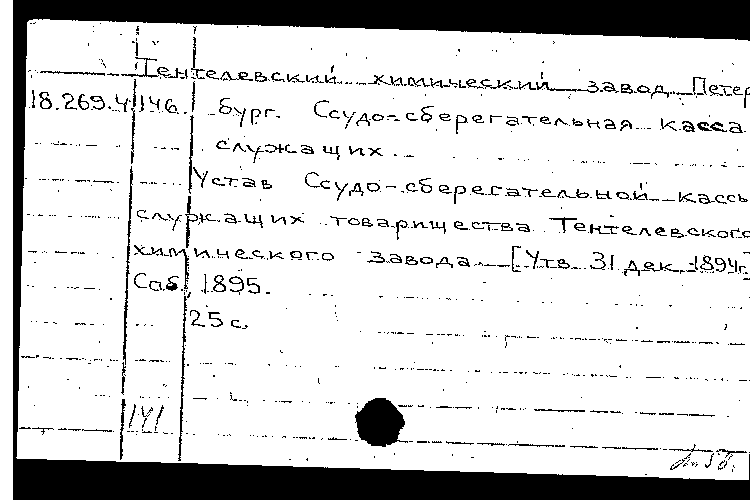 Тентелевский химический завод Петер
18.269.4.146. бург. Ссудо-сберегательная касса
служащих.
Устав Ссудо-сберегательной кассы
служащих товарищества Тентелевского
химического завода. [Утв. 31 дек. 1894г.]
Спб., 1895.
25 с.
141